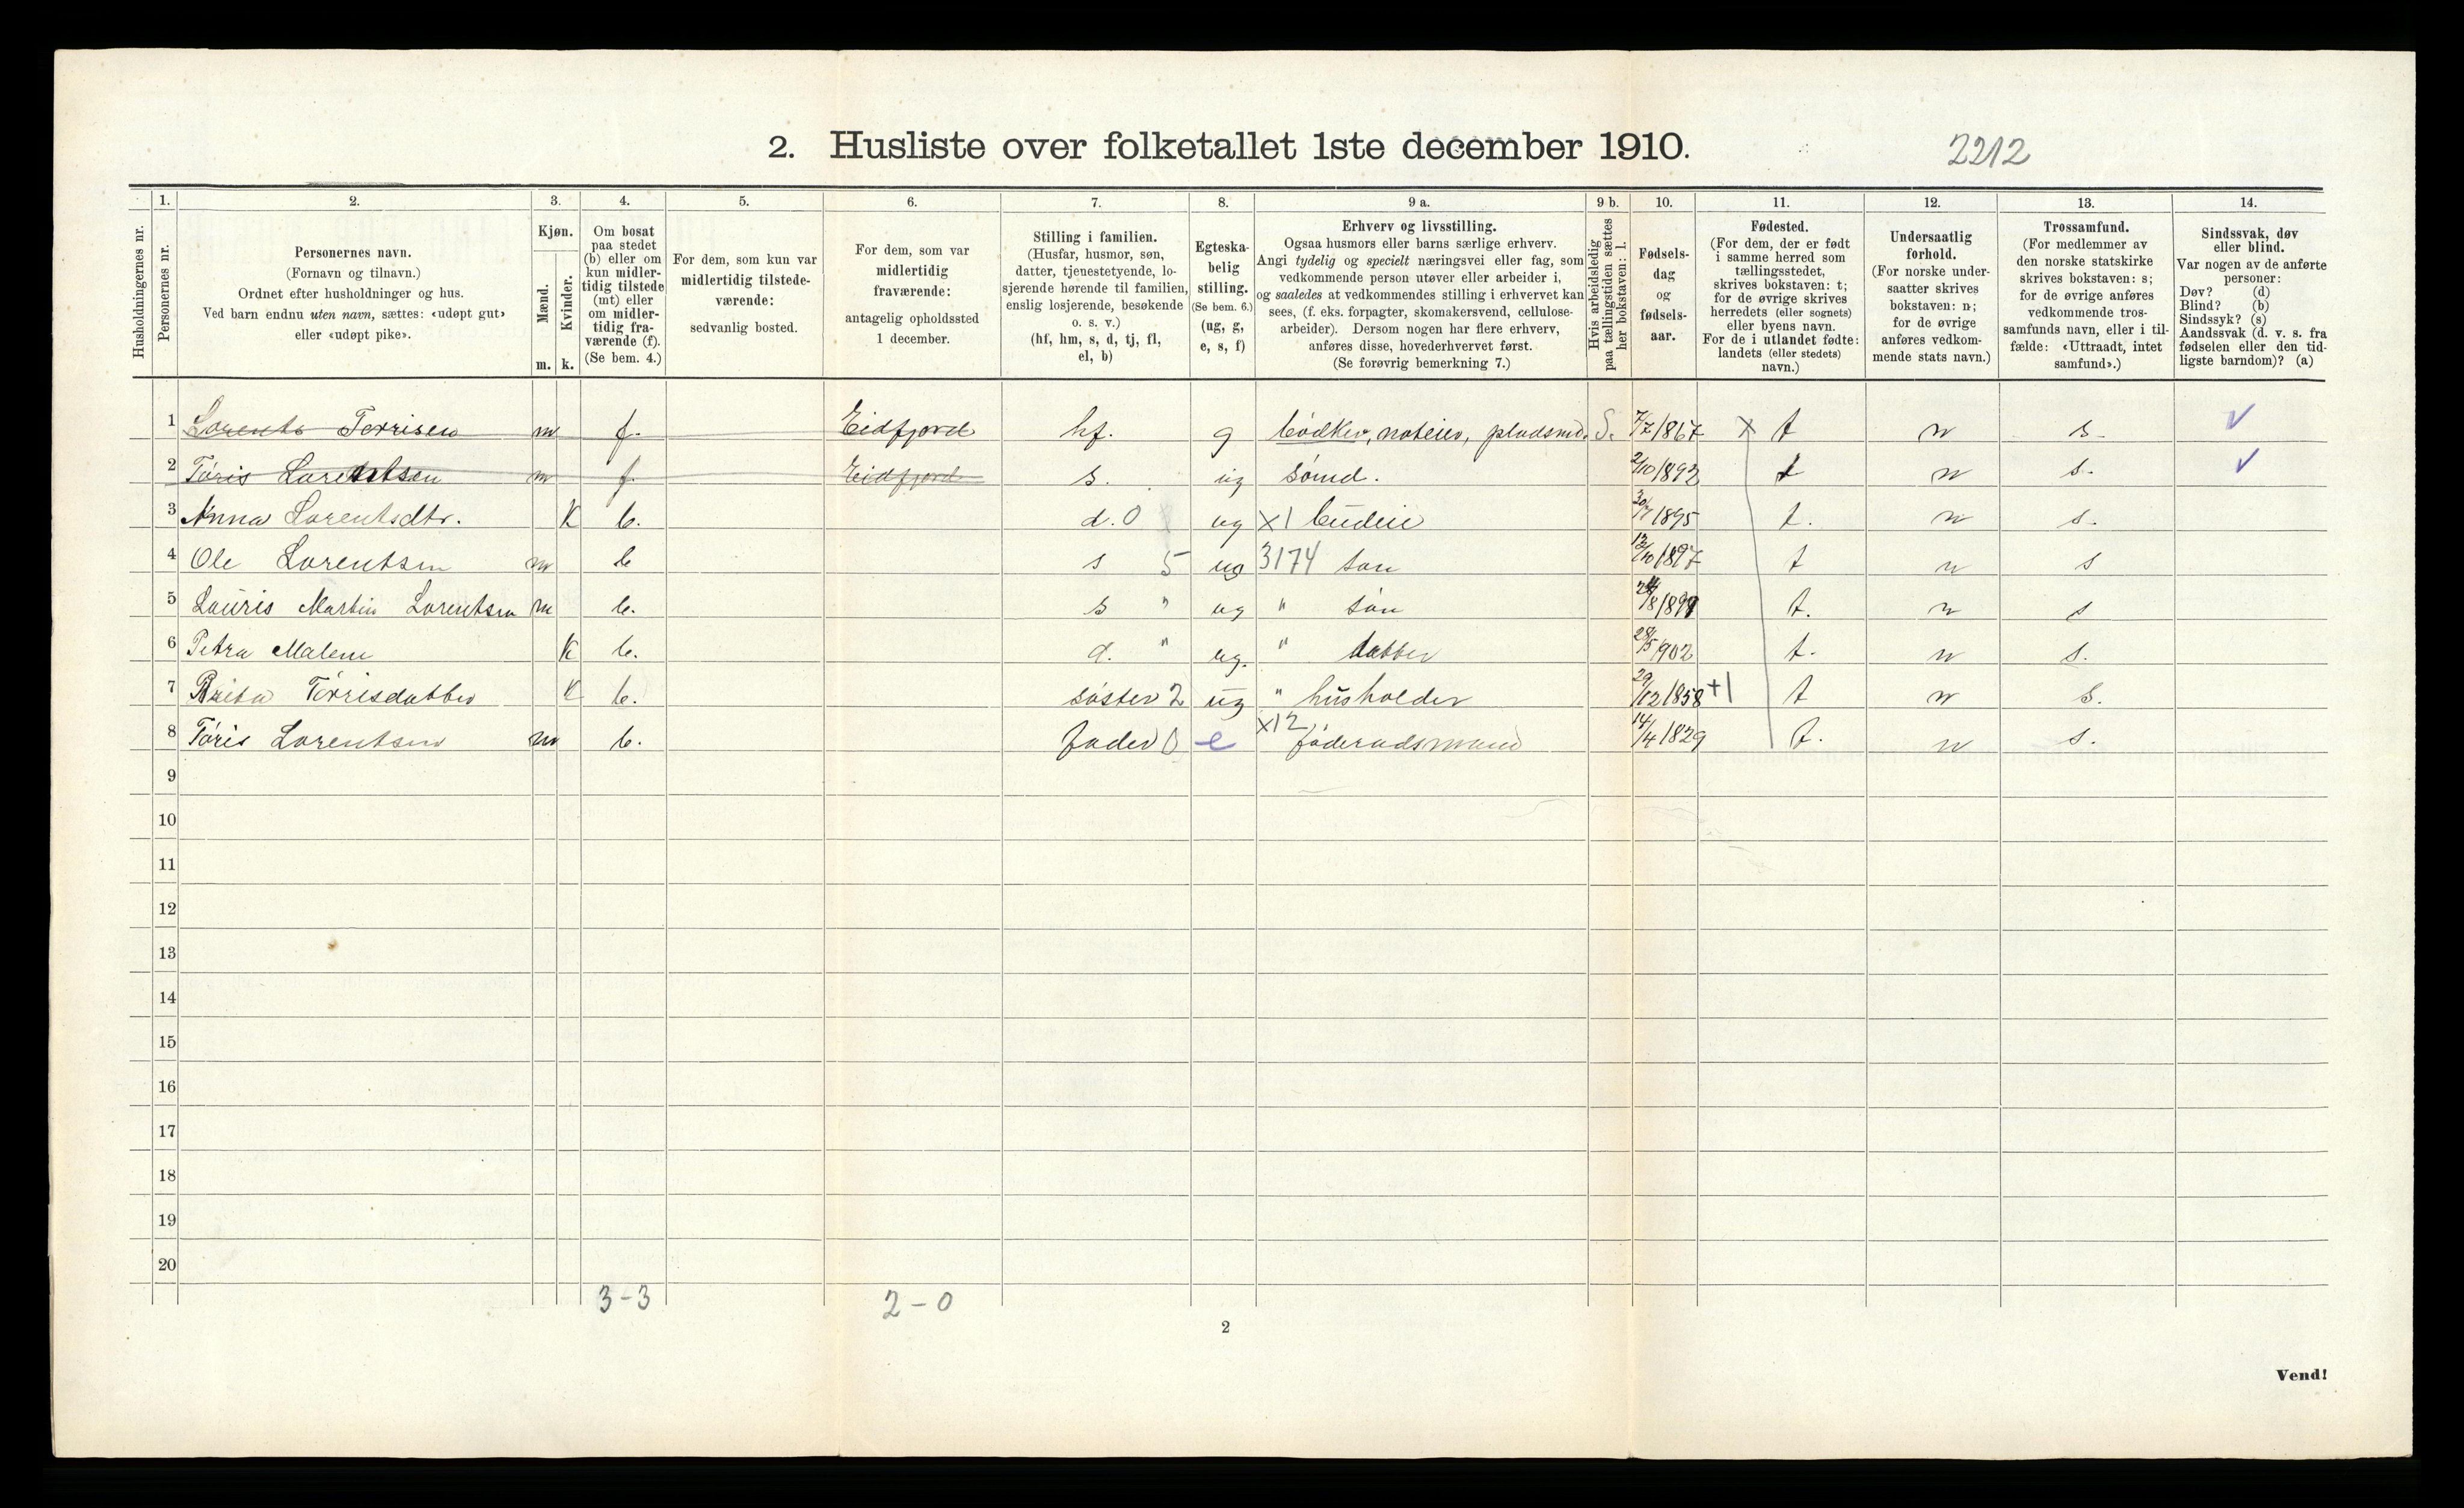 2. Husliste over folketallet 1ste december 1910.
2212
1. 2. 3. 4. 5. 6. 7. 8. 9 a. 9 b. 10. 11. 12. 13. 14.
Husholdningernes nr.
Personernes nr.
Personernes navn.
(Fornavn og tilnavn.)
Ordnet efter husholdninger og hus.
Ved barn endnu uten navn, sættes: «udøpt gut»
eller «udøpt pike».
Kjøn.
Mænd.
Kvinder.
m. k.
Om bosat
paa stedet
(b) eller om
kun midler-
tidig tilstede
(mt) eller
om midler-
tidig fra-
værende (f).
(Se bem. 4.)
For dem, som kun var
midlertidig tilstede-
værende:
sedvanlig bosted.
For dem, som var
midlertidig
fraværende:
antagelig opholdssted
1 december.
Stilling i familien.
(Husfar, husmor, søn,
datter, tjenestetyende, lo-
sjerende hørende til familien,
enslig losjerende, besøkende
o. s. v.)
(hf, hm, s, d, tj, fl,
el, b)
Egteska-
belig
stilling.
(Se bem. 6.)
(ug, g,
e, s, f)
Erhverv og livsstilling.
Ogsaa husmors eller barns særlige erhverv.
Angi tydelig og specielt næringsvei eller fag, som
vedkommende person utøver eller arbeider i,
og saaledes at vedkommendes stilling i erhvervet kan
sees, (f. eks. forpagter, skomakersvend, cellulose-
arbeider). Dersom nogen har flere erhverv,
anføres disse, hovederhvervet først.
(Se forøvrig bemerkning 7.)
Hvis arbeidsledig
paa tællingstiden sættes
her bokstaven: l.
Fødsels-
dag
og
fødsels-
aar.
Fødested.
(For dem, der er født
i samme herred som
tællingsstedet,
skrives bokstaven: t;
for de øvrige skrives
herredets (eller sognets)
eller byens navn.
For de i utlandet fødte:
landets (eller stedets)
navn.)
Undersaatlig
forhold.
(For norske under-
saatter skrives
bokstaven: n;
for de øvrige
anføres vedkom-
mende stats navn.)
Trossamfund.
(For medlemmer av
den norske statskirke
skrives bokstaven: s;
for de øvrige anføres
vedkommende tros-
samfunds navn, eller i til-
fælde: «Uttraadt, intet
samfund».)
Sindssvak, døv
eller blind.
Var nogen av de anførte
personer:
Døv? (d)
Blind? (b)
Sindssyk? (s)
Aandssvak (d. v. s. fra
fødselen eller den tid-
ligste barndom)? (a)
1 Lorents Torrisen m f. Eidfjord hf. g bødker, noteier, pladsmd. S. 7/7 1867 x t n s.
2 Tøris Lorentsen m f Eidfjord s. ug sømd. 2/10 1892 t n s.
3 Anna Lorentsdtr. K b. d. 0 ug x1 budeie 30/7 1895 t. n s.
4 Ole Lorentsen m b s 5 ug 3174 søn 12/10 1897 t n s
5 Lauris Martin Lorentsen m b. s " ug " søn t. n s
6 Petra Malene K b. d. " ug. " datter 28/5 902 t. n s.
7 Brita Tørrisdatter K b. søster 2 ug " husholder 29/12 1858 +1 t n s.
8 Tøris Lorentsen m b. fader 0 e x12 føderadsmand 14/4 1829 t. n s.
9
10
11
12
13
14
15
16
17
18
19
20
3-3 2-0
2
Vend!